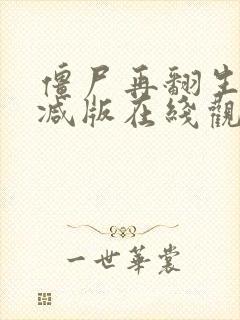 僵尸再翻生
减版在綫觀
一世華裳